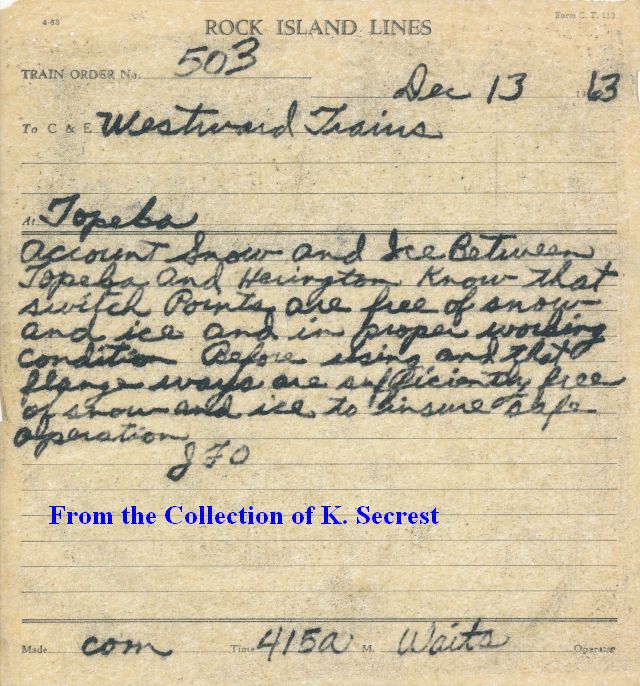 4-63
Form C. T. 110
ROCK ISLAND LINES
TRAIN ORDER No. 503
Dec 13 1963
To C & E Westward Trains
At Topeka
Account Snow and Ice Between
Topeka and Herington Know that
switch Points are free of snow
and ice and in proper working
condition Before using and that
flange ways are sufficiently free
of snow and ice to insure safe
operation
JFO
From the Collection of K. Secrest
Made com Time 415a M. Waits Operator